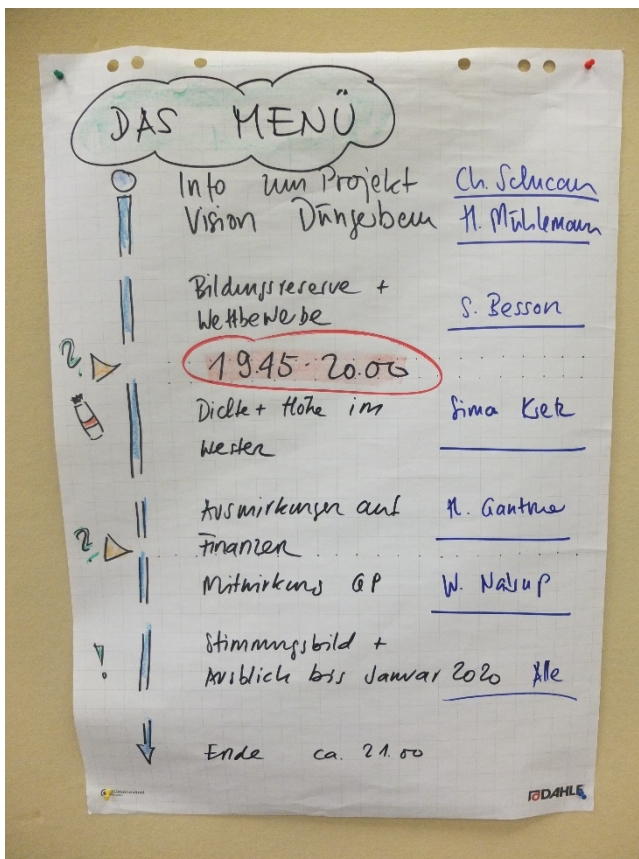 DAS MENÜ
Info zum Projekt Ch. Schucan
Vision Düngerbau H. Mühlemann
Bildungsreserve +
Wettbewerbe S. Besson
?
19.45 - 20.00
Dichte + Höhe im Sima
Westen
Auswirkungen auf
? Finanzen
Mitwirkung QP W.
Stimmungsbild +
! Ausblick bis Januar 2020 Alle
Ende ca. 21.00
DAHLE